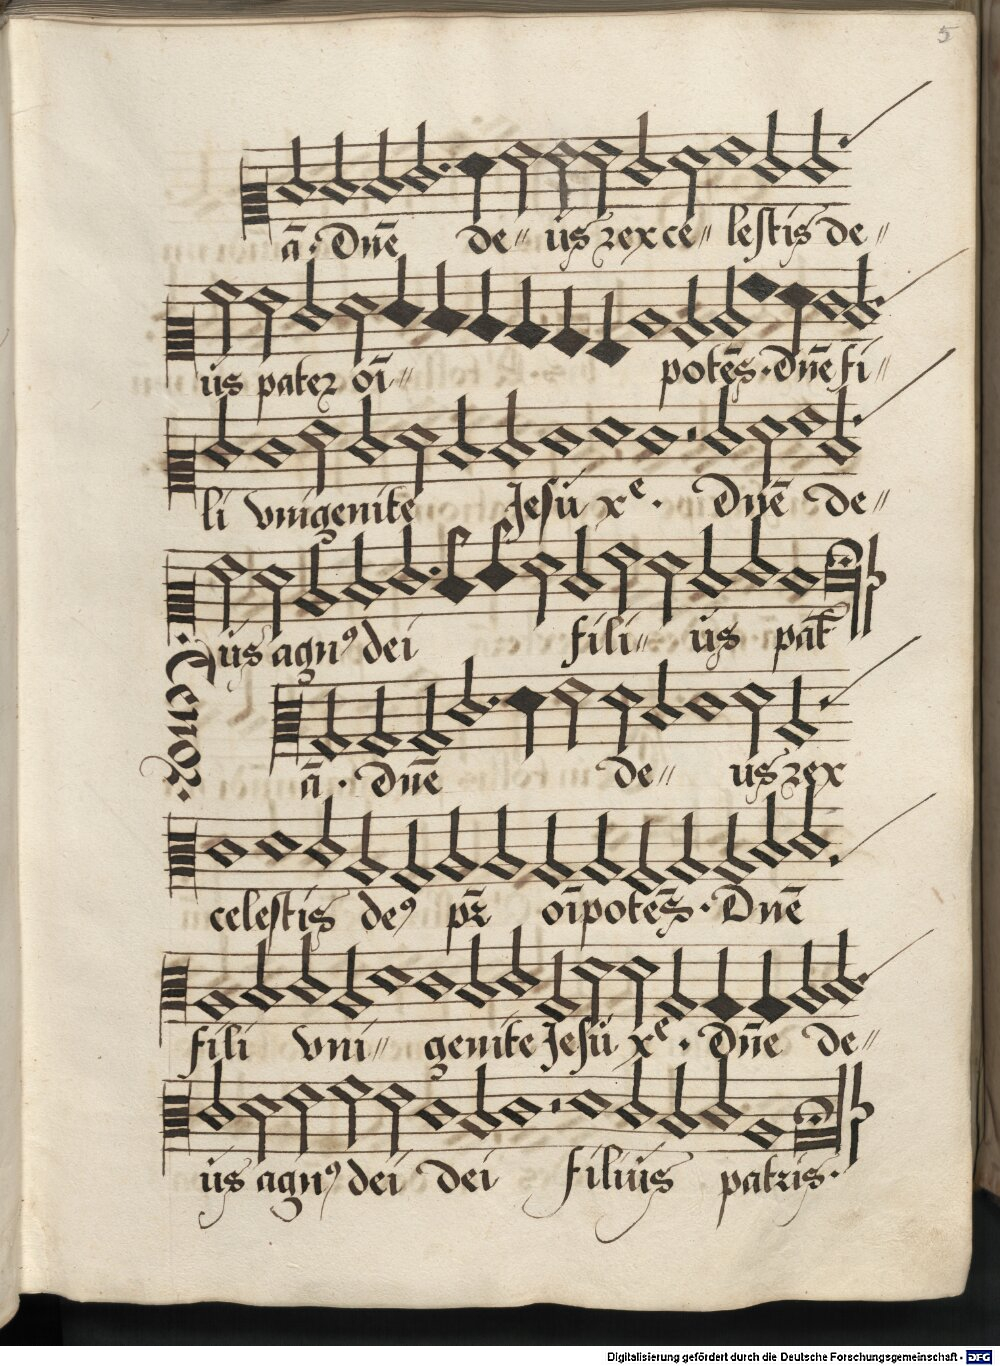 5
ā · Dn̄e de〃 us rex ce〃 lestis de〃
us pater oī〃 potēs · Dn̄e fi〃
li vnigenite Jesu xͤ · Dn̄e de〃
us agnꝰ dei fili〃 us pat̄
Tenor.
ā · Dn̄e de〃 us rex
celestis deꝰ pr̄ oīpotēs · Dn̄e
fili vni〃 genite Jesu xͤ · Dn̄e de〃
us agnꝰ dei dei filius patris ·
Digitalisierung gefördert durch die Deutsche Forschungsgemeinschaft - DFG